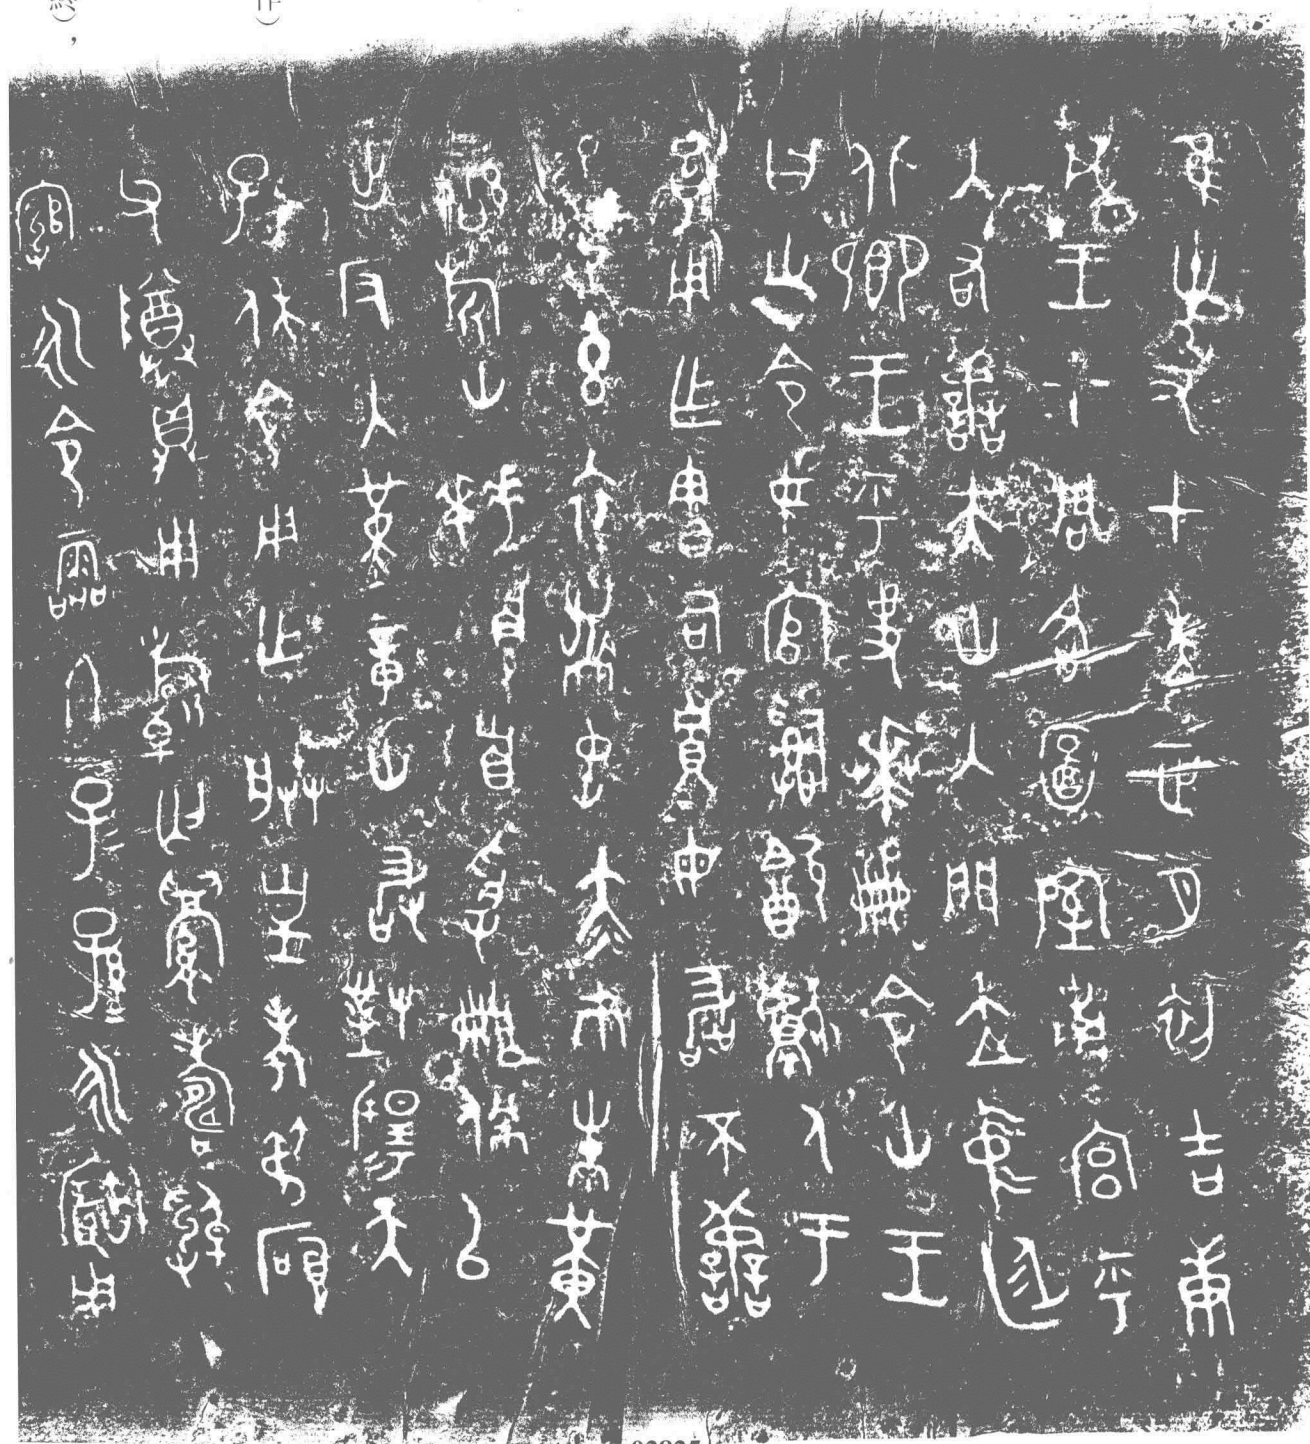 隹卅又七年正月初吉庚
戌王才周各圖室南宮乎
入右善夫山入門立中廷
北卿王乎史𠦪冊令山王
曰山令女官𤔲㱃獻人于
用乍憲司貯母敢不善
易女玄衣黹屯赤巿朱黃
䜌旂山拜𩒨首受冊佩㠯
出反入堇章山敢對揚天
子休令用乍朕皇考弔碩
父尊鼎用祈匃眉壽綽
綰永令霝冬子子孫孫永寶用